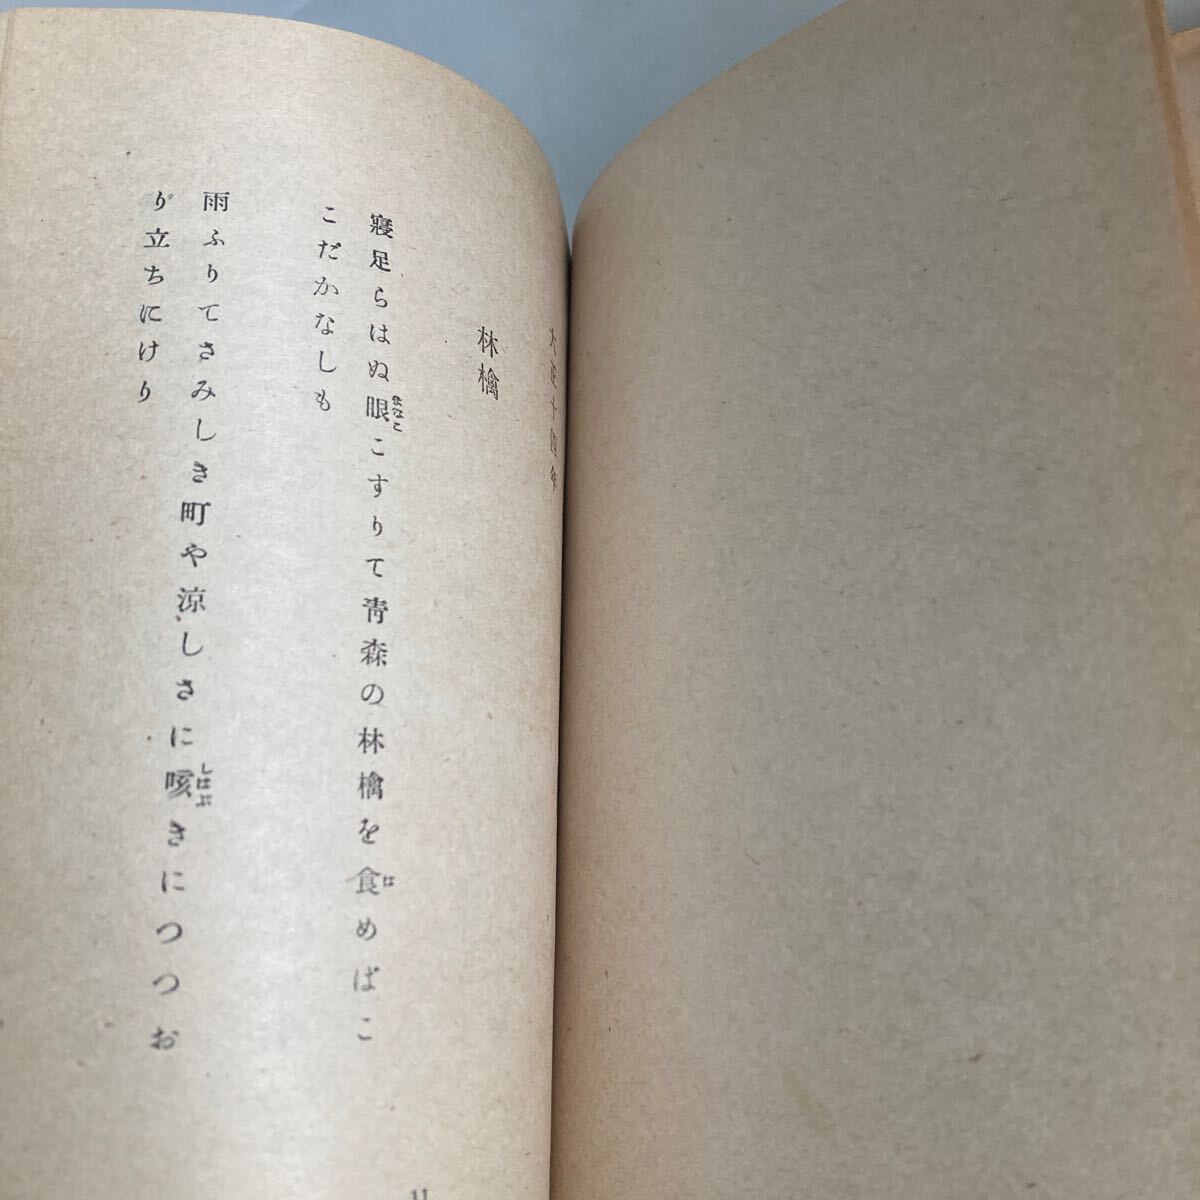 大正十四年
林檎
寢足らはぬ眼こすりて青森の林檎を食めばこ
まなこ
は
こだかなしも
雨ふりてさみしき町や涼しさに咳きにつつお
しはぶ
り立ちにけり
11